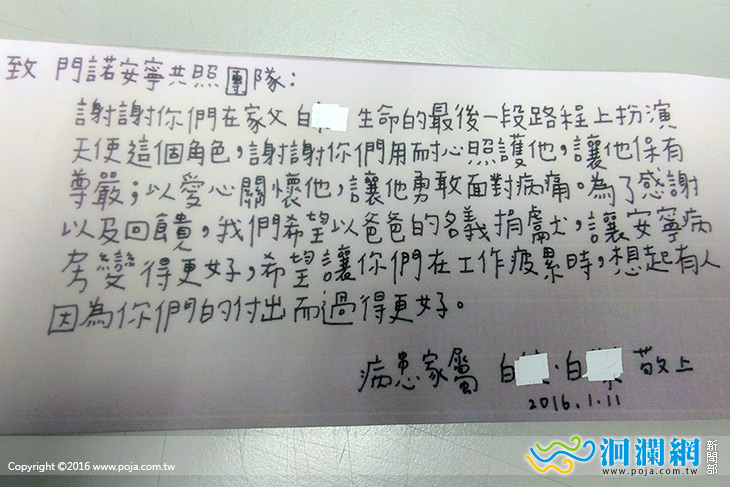 致 門諾安寧共照團隊：
謝謝你們在家父 白 生命的最後一段路程上扮演
天使這個角色，謝謝你們用耐心照護他，讓他保有
尊嚴；以愛心關懷他，讓他勇敢面對病痛。為了感謝
以及回饋，我們希望以爸爸的名義捐獻，讓安寧病
房變得更好，希望讓你們在工作疲累時，想起有人
因為你們的付出而過得更好。
病患家屬 白 、白 敬上
2016.1.11
Copyright ©2016 www.poja.com.tw
洄瀾網
新聞部
www.poja.com.tw